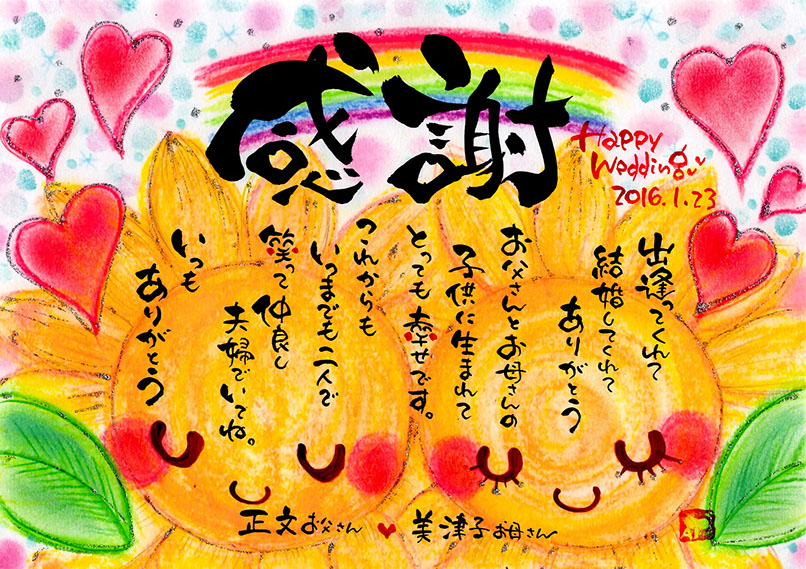 感謝
Happy
Wedding
2016.1.23
出逢ってくれて
結婚してくれて
ありがとう
お父さんとお母さんの
子供に生まれて
とっても幸せです。
これからも
いつまでも二人で
笑って仲良し
夫婦でいてね。
いつも
ありがとう
正文お父さん ♥ 美津子お母さん